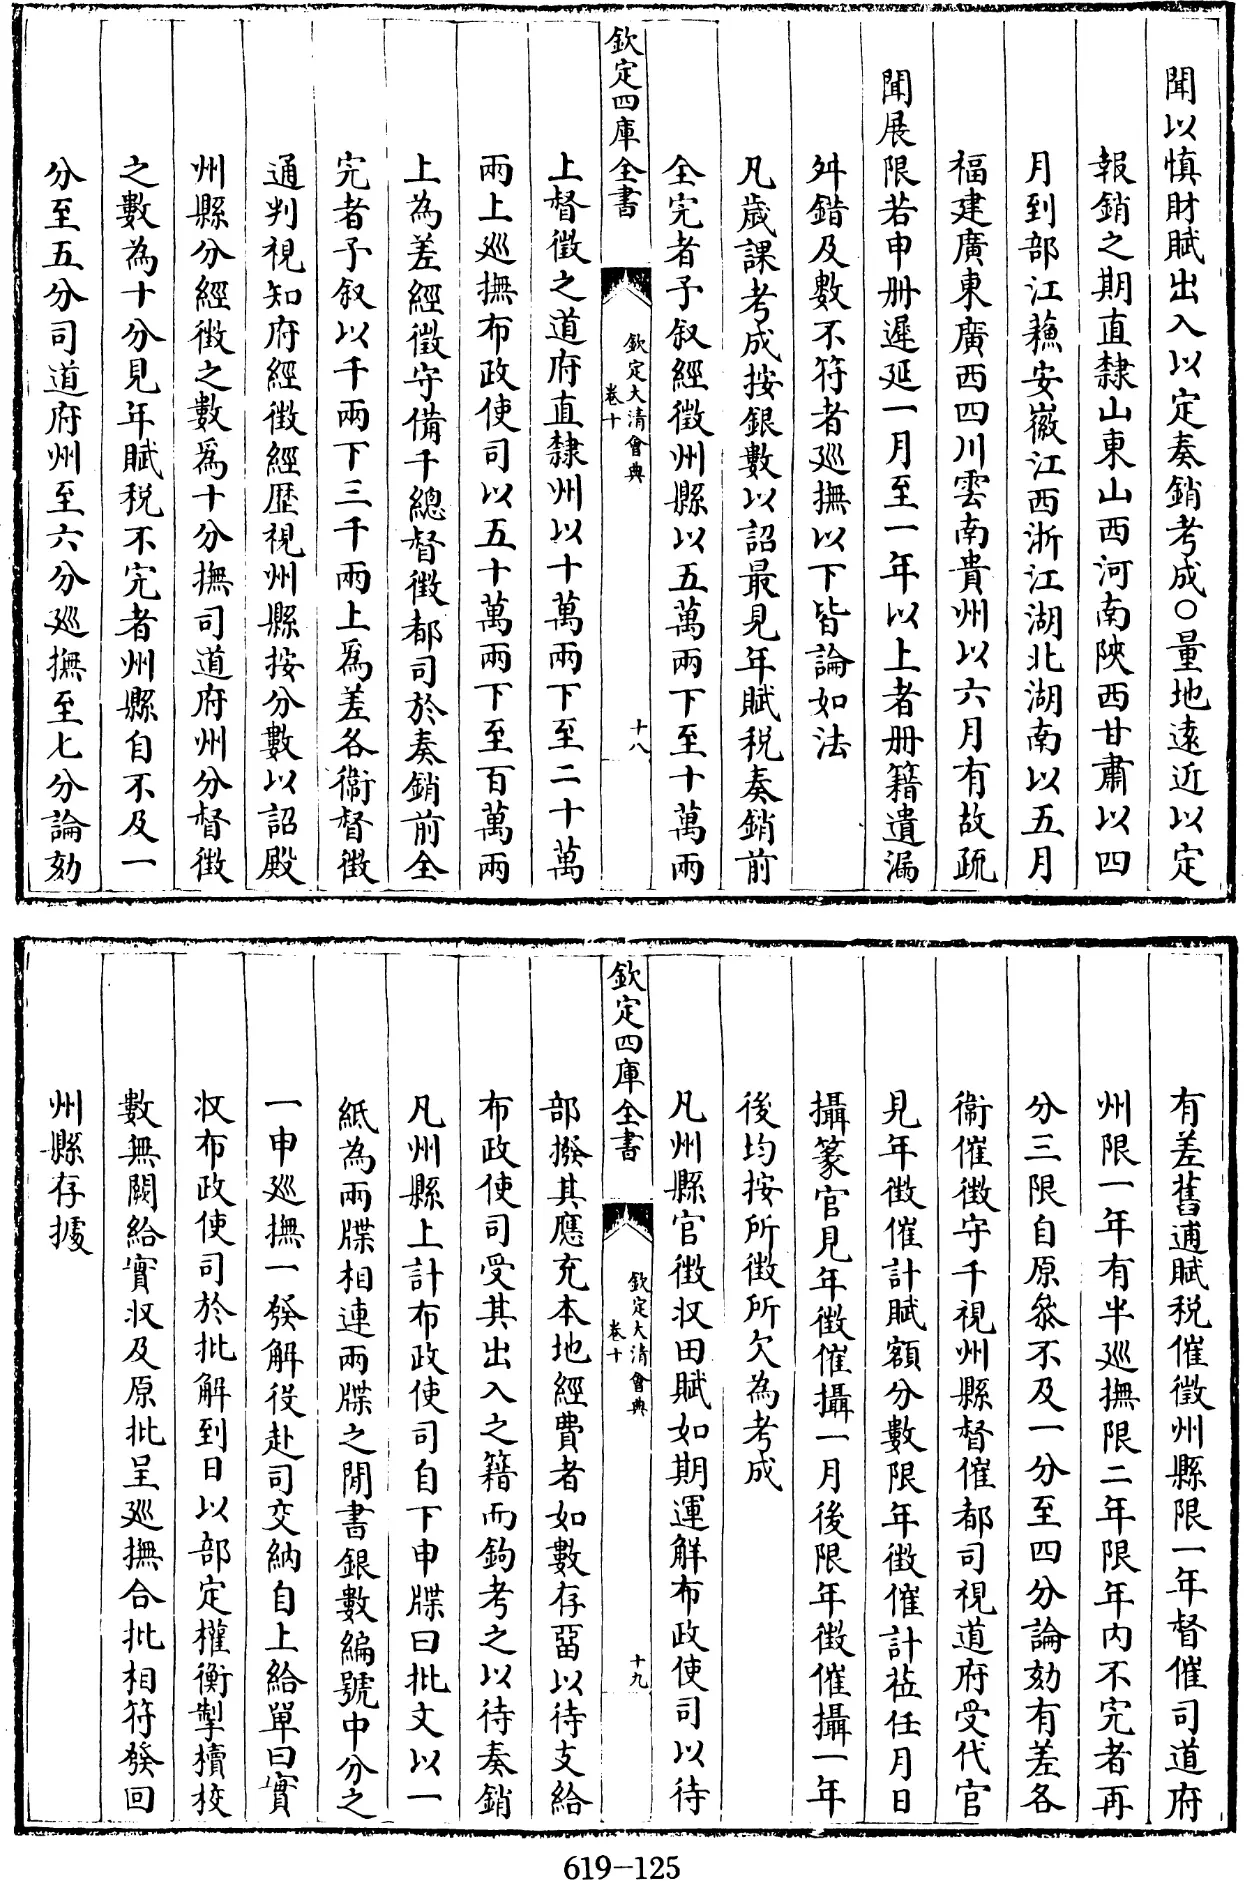 聞以慎財賦出入以定奏銷考成○量地逺近以定
報銷之期直隸山東山西河南陝西甘肅以四
月到部江蘓安徽江西浙江湖北湖南以五月
福建廣東廣西四川雲南貴州以六月有故疏
聞展限若申册遲延一月至一年以上者册籍遺漏
舛錯及數不符者廵撫以下皆論如法
凡歲課考成按銀數以詔最見年賦税奏銷前
全完者予叙經徴州縣以五萬兩下至十萬兩
欽定四庫全書
欽定大清會典
卷十
十八
上督徴之道府直隸州以十萬兩下至二十萬
兩上廵撫布政使司以五十萬兩下至百萬兩
上為差經徴守備千總督徴都司於奏銷前全
完者予叙以千兩下三千兩上爲差各衞督徴
通判視知府經徴經歴視州縣按分數以詔殿
州縣分經徴之數爲十分撫司道府州分督徴
之數為十分見年賦税不完者州縣自不及一
分至五分司道府州至六分廵撫至七分論劾
有差舊逋賦税催徴州縣限一年督催司道府
州限一年有半廵撫限二年限年内不完者再
分三限自原叅不及一分至四分論劾有差各
衞催徴守千視州縣督催都司視道府受代官
見年徴催計賦額分數限年徴催計莅任月日
攝篆官見年徴催攝一月後限年徴催攝一年
後均按所徴所欠為考成
凡州縣官徴収田賦如期運解布政使司以待
欽定四庫全書
欽定大清會典
卷十
十九
部撥其應充本地經費者如數存畱以待支給
布政使司受其出入之籍而鉤考之以待奏銷
凡州縣上計布政使司自下申牒曰批文以一
紙為兩牒相連兩牒之閒書銀數編號中分之
一申廵撫一發解役赴司交納自上給單曰實
収布政使司於批解到日以部定權衡掣櫝校
數無闕給實収及原批呈廵撫合批相符發回
州縣存據
619-125